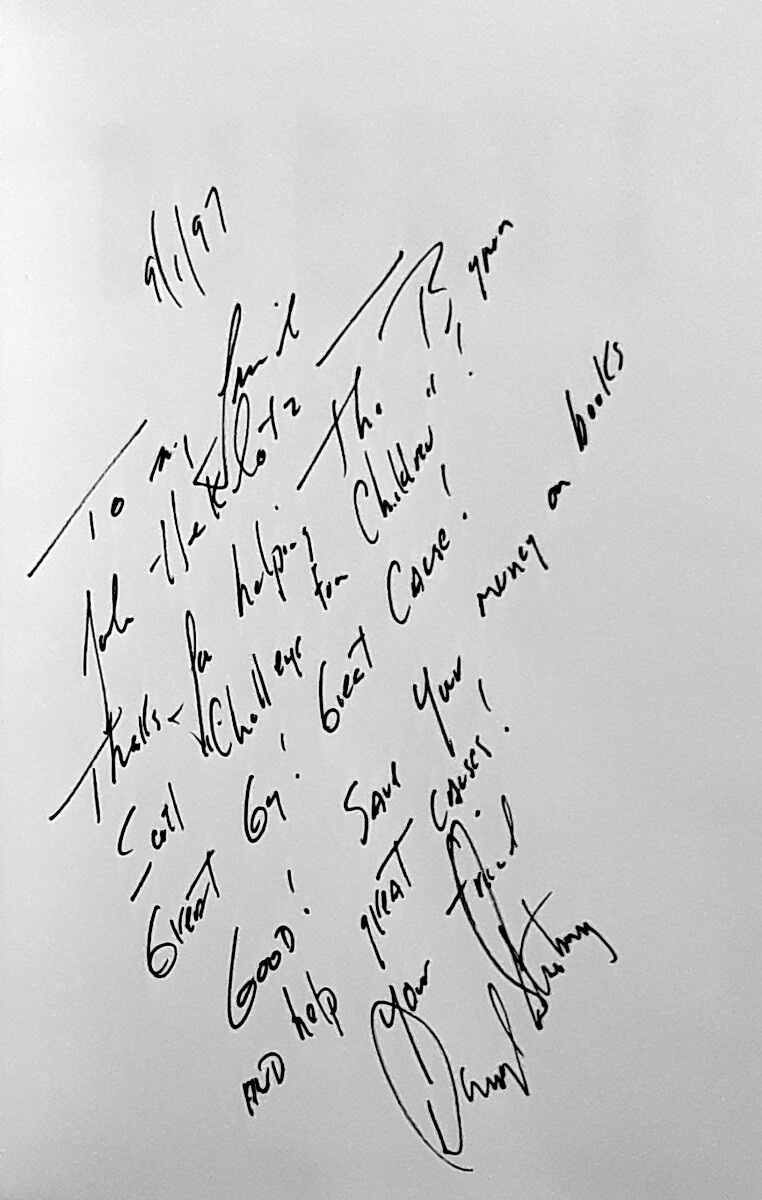 9/1/97
To my Friend
John Herklotz
Thanks for helping The
Scott "Challenge For Children"!
Great Guy! Great Cause!
Good! Save your money on books
AND help great causes!
Your Friend